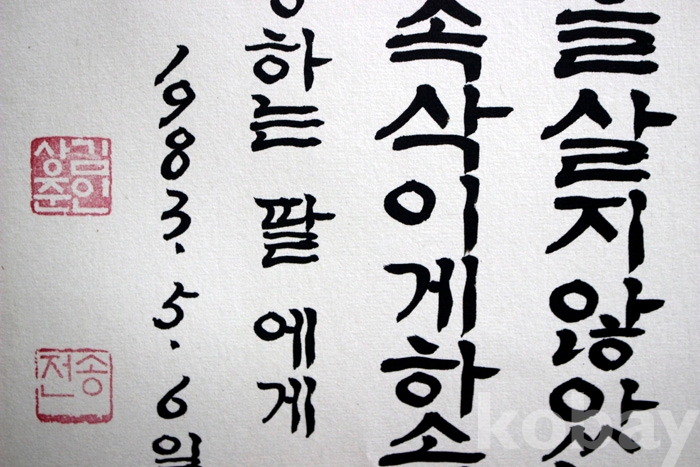 살지않았
속삭이게하소
하는 딸에게
1983. 5. 6일
김인
상준
송전
kobay